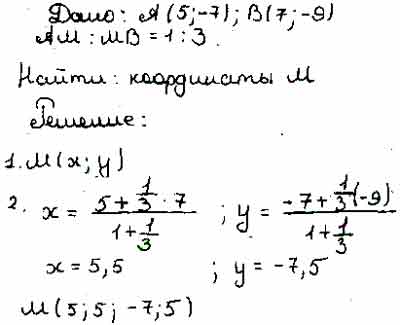 Дано: A(5;-7); B(7;-9)
AM : MB = 1 : 3.
Найти: координаты M
Решение:
1. M(x; y)
2. x = (5 + 1/3 · 7)/(1 + 1/3) ; y = (-7 + 1/3(-9))/(1 + 1/3)
x = 5,5 ; y = -7,5
M(5;5; -7;5)